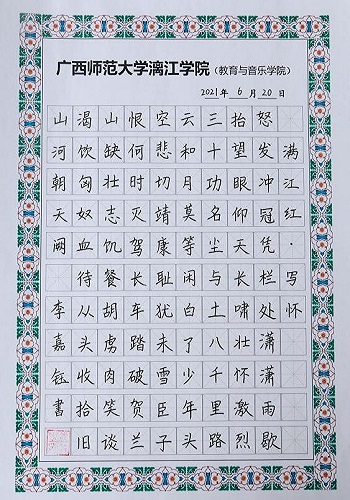 广西师范大学漓江学院（教育与音乐学院）
2021年 6 月 20 日
满江红·写怀
怒发冲冠凭栏处潇潇雨歇
抬望眼仰天长啸壮怀激烈
三十功名尘与土八千里路
云和月莫等闲白了少年头
空悲切靖康耻犹未雪臣子
恨何时灭驾长车踏破贺兰
山缺壮志饥餐胡虏肉笑谈
渴饮匈奴血待从头收拾旧
山河朝天阙 李嘉钰書